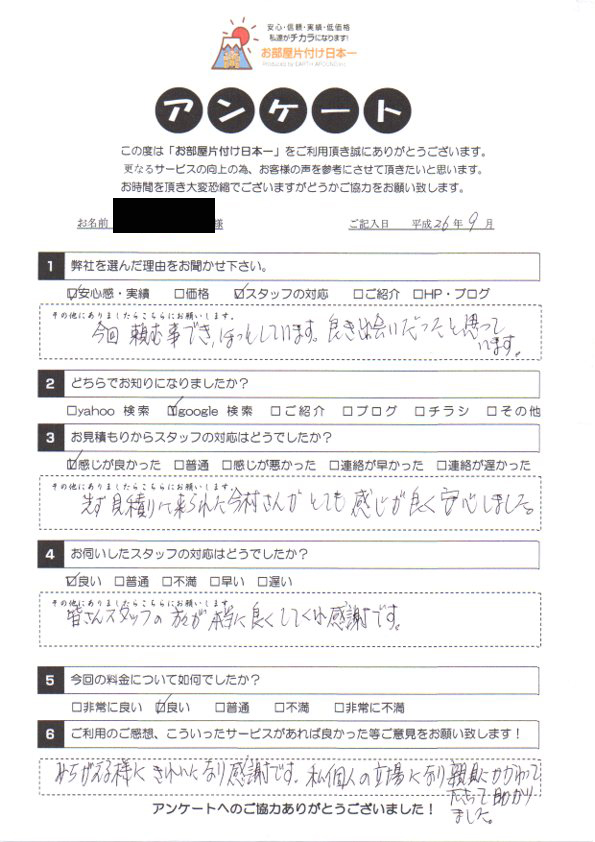 安心・信頼・実績・低価格
私達がチカラになります!
お部屋片付け日本一
Produced by EARTH AROUND.inc
アンケート
この度は「お部屋片付け日本一」をご利用頂き誠にありがとうございます。
更なるサービスの向上の為、お客様の声を参考にさせて頂きたいと思います。
お時間を頂き大変恐縮でございますがどうかご協力をお願い致します。
お名前 様 ご記入日 平成 26 年 9 月
1 弊社を選んだ理由をお聞かせ下さい。
☑安心感・実績 □価格 ☑スタッフの対応 □ご紹介 □HP・ブログ
その他にありましたらこちらにお願いします。
今回 頼む事でき、ほっとしています。良き出会いだったと思って
います。
2 どちらでお知りになりましたか?
□yahoo 検索 ☑google 検索 □ご紹介 □ブログ □チラシ □その他
3 お見積もりからスタッフの対応はどうでしたか?
☑感じが良かった □普通 □感じが悪かった □連絡が早かった □連絡が遅かった
その他にありましたらこちらにお願いします。
先ず見積りに来られた今村さんがとても感じが良く安心しました。
4 お伺いしたスタッフの対応はどうでしたか?
☑良い □普通 □不満 □早い □遅い
その他にありましたらこちらにお願いします。
皆さんスタッフの方々が本当に良くしてくれ感謝です。
5 今回の料金について如何でしたか?
□非常に良い ☑良い □普通 □不満 □非常に不満
6 ご利用のご感想、こういったサービスがあれば良かった等ご意見をお願い致します!
みちがえる様にきれいになり感謝です。私個人の立場になり親身にかかわって
下さって助かり
ました。
アンケートへのご協力ありがとうございました!